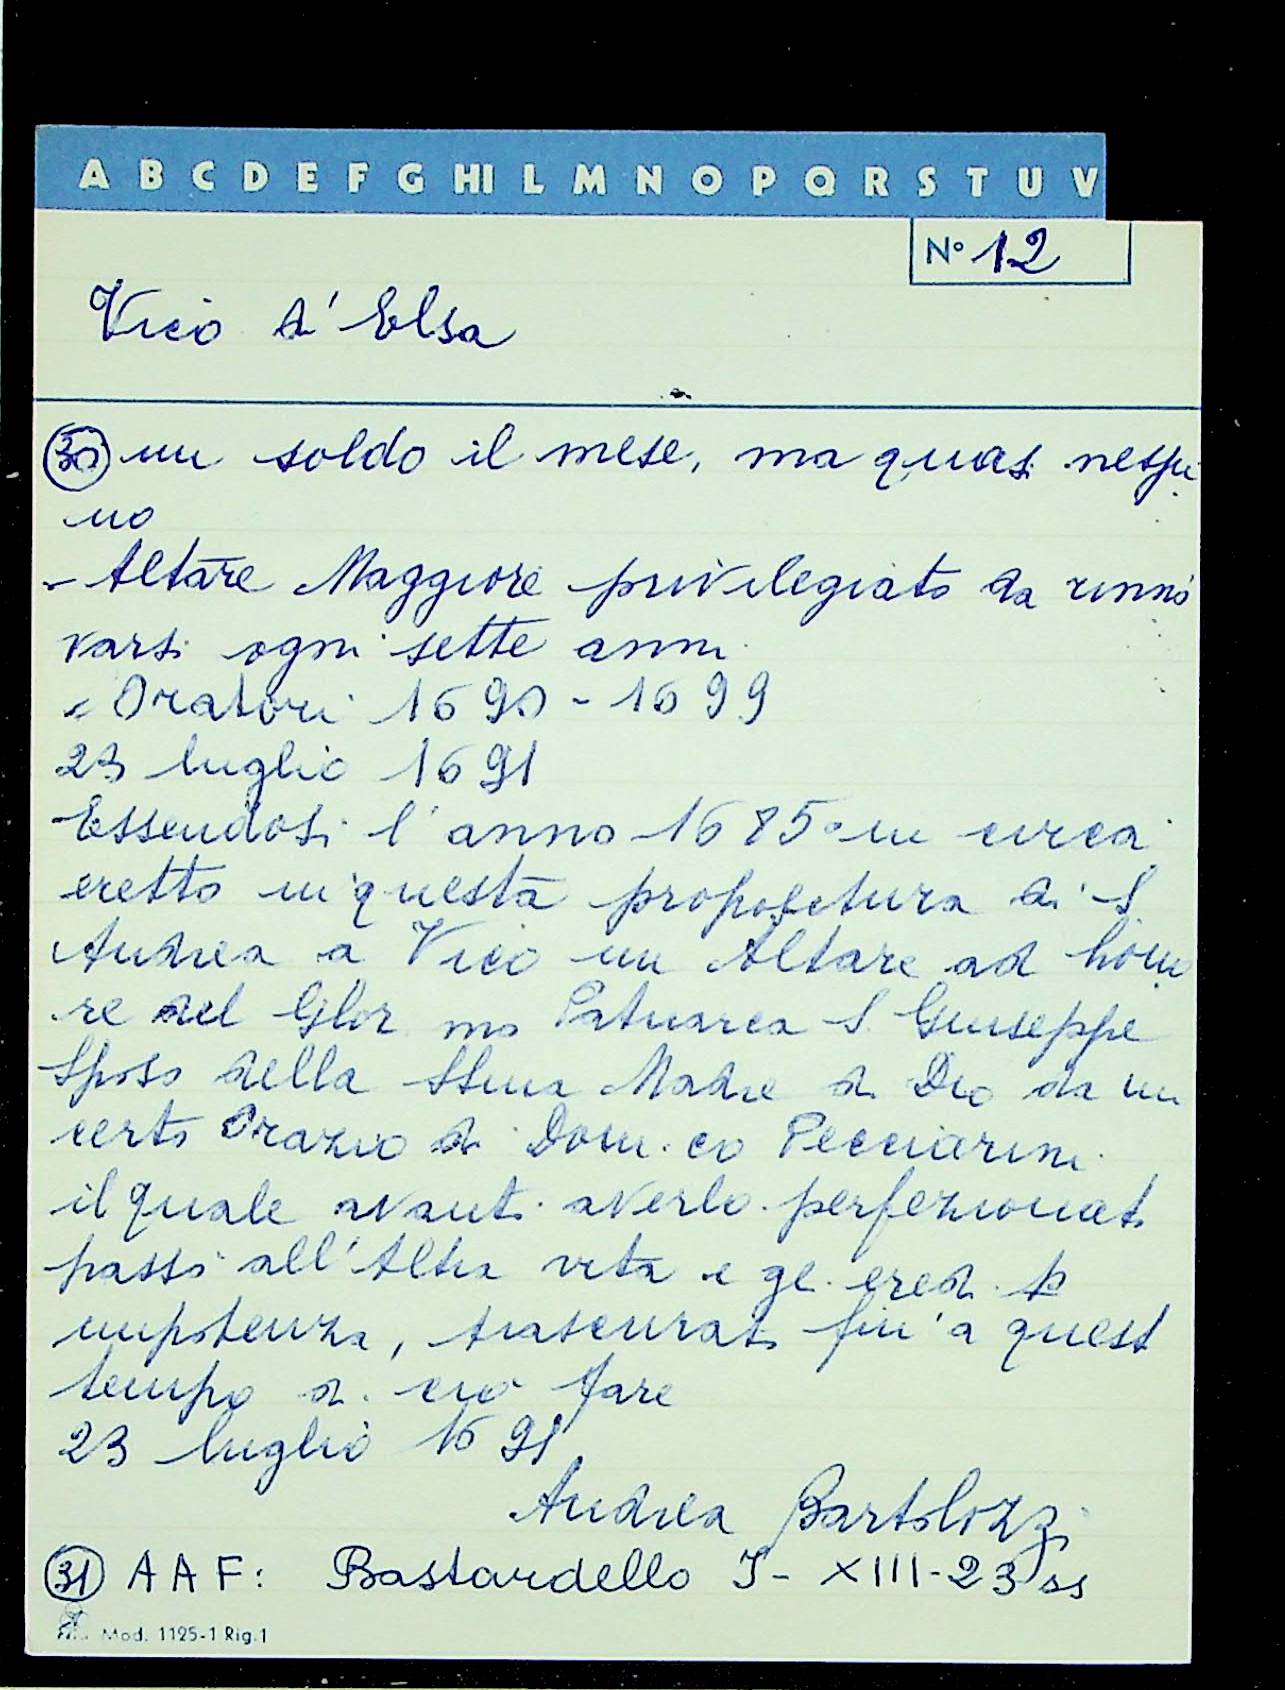 A B C D E F G HI L M N O P Q R S T U V
N° 12
Vico d'Elsa
30 un soldo il mese, ma quasi nessu
no
- Altare Maggiore privilegiato da rinno
varsi ogni sette anni
- Oratori 1690 - 1699
23 luglio 1691
Essendosi l'anno 1685 o in circa
eretto in questa propositura di S.
Andrea a Vico un Altare ad hono
re del Glor mo Patriarca S. Giuseppe
Sposo della SSma Madre di Dio da un
certo Orazio di Dom.co Pecciarini
il quale avanti averlo perfezionato
passò all'Altra vita e gl. eredi p
impotenza, trascurato fin'a questo
tempo di ciò fare
23 luglio 1691
Andrea Bartolozzi
31 A A F: Bastardello I - XIII - 23 ss
Mod. 1125-1 Rig.1